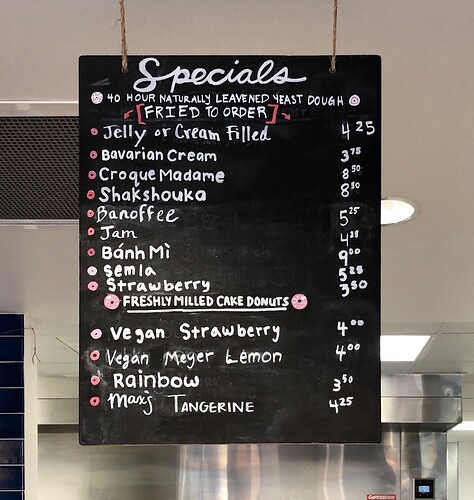 Specials
40 HOUR NATURALLY LEAVENED YEAST DOUGH
[FRIED TO ORDER]
Jelly or Cream Filled 4 25
Bavarian Cream 3 75
Croque Madame 8 50
Shakshouka 8 50
Banoffee 5 25
Jam
Bánh Mì 9 00
Semla 5 25
Strawberry 3 50
FRESHLY MILLED CAKE DONUTS
Vegan Strawberry 4 00
Vegan Meyer Lemon 4 00
Rainbow 3 50
Max's TANGERINE 4 25